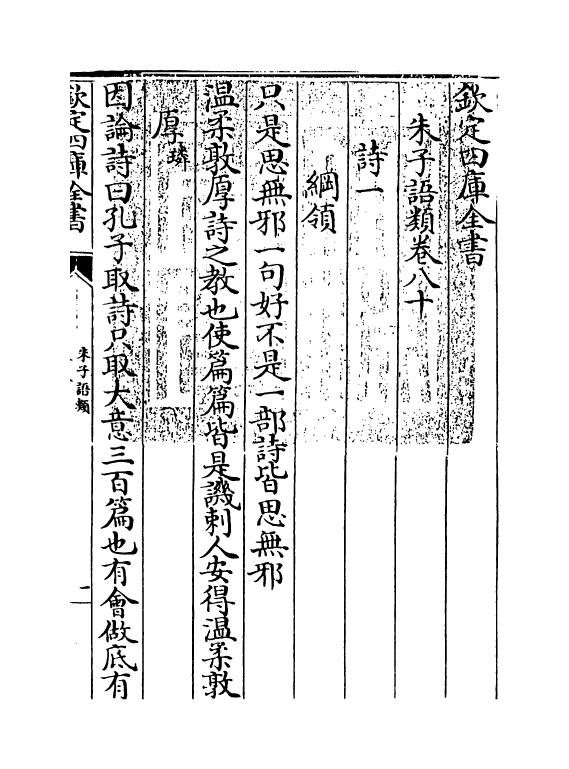 欽定四庫全書
朱子語類卷八十
詩一
綱領
只是思無邪一句好不是一部詩皆思無邪
温柔敦厚詩之教也使篇篇皆是譏刺人安得温柔敦
厚璘
因論詩曰孔子取詩只取大意三百篇也有會做底有
欽定四庫全書
朱子語類
一